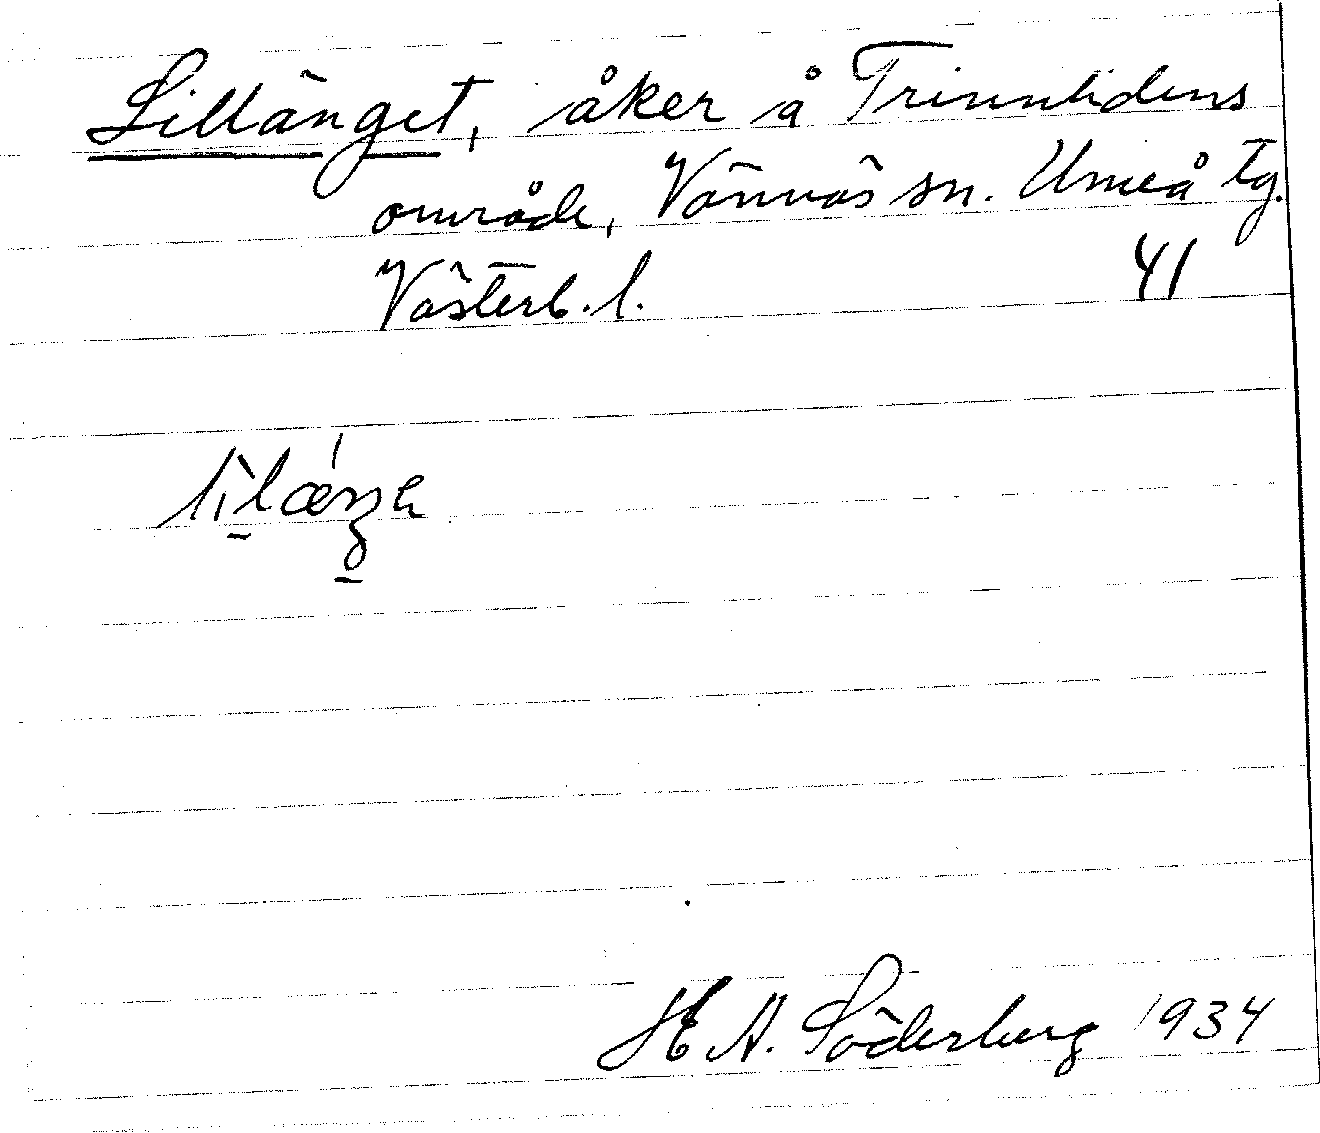 Lillänget, åker å Trinnlidens
område, Vännäs sn. Umeå tg.
Västerb. l. 41
H A. Söderberg 1934